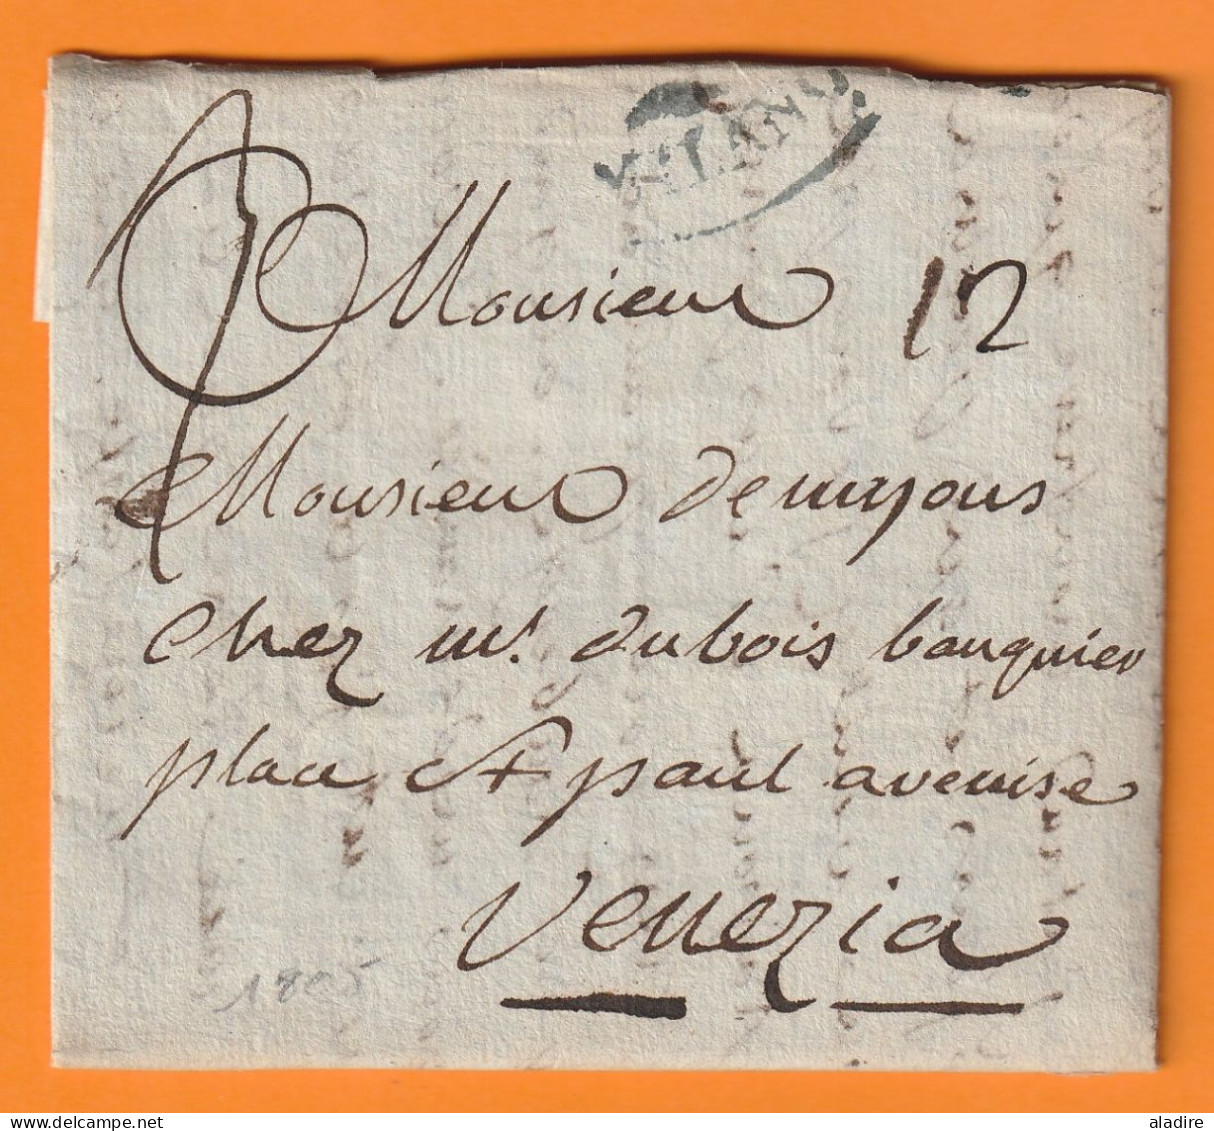 MILANO.
Monsieur 12
Monsieur demyons
chez mr. dubois banquier
place St paul avenise
Venezia
1805
delcampe.net
aladire